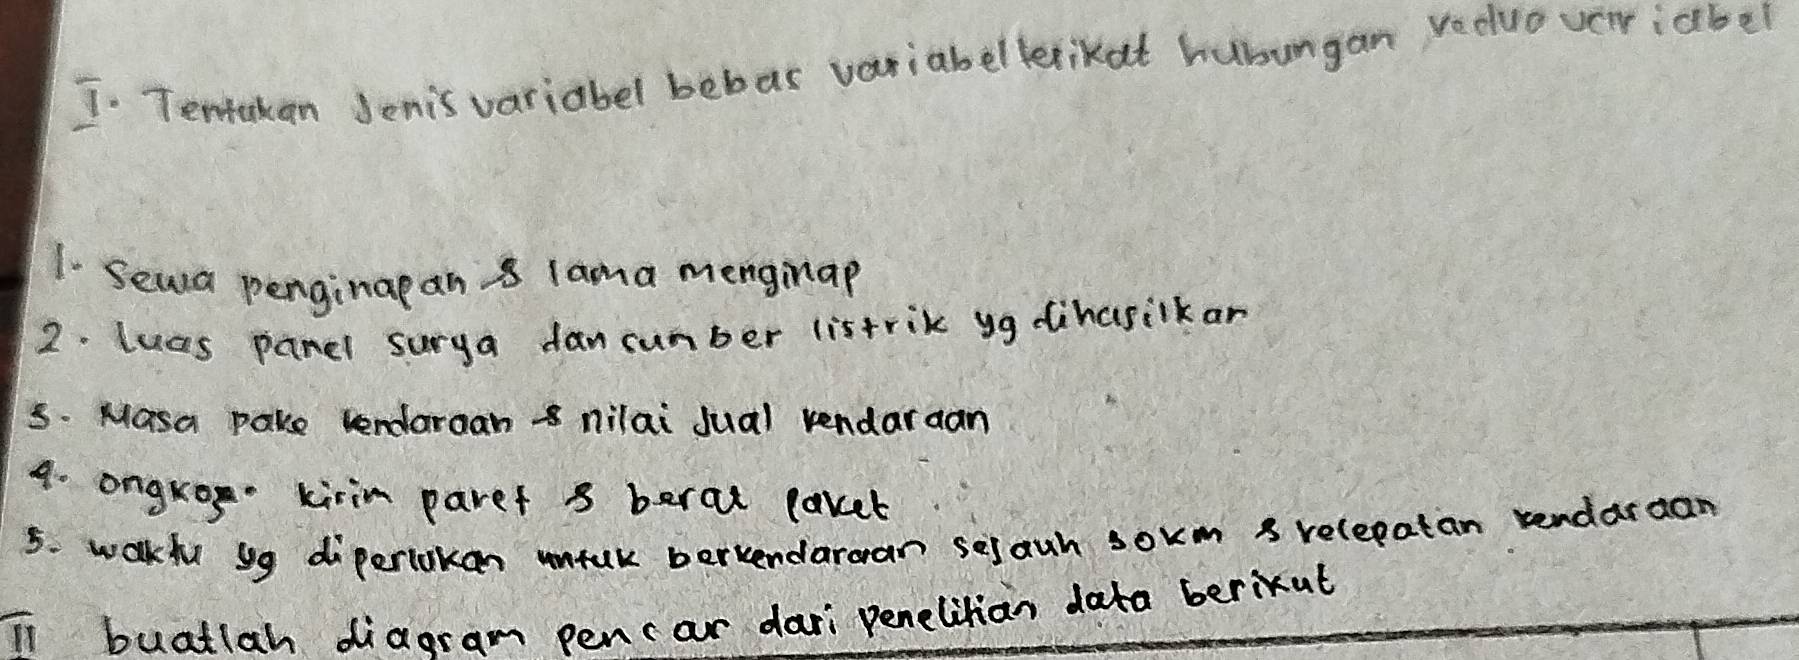 I. Tentukan Jenis variabel bebas variabel terikat hubungan kedua variabel
1. Sewa penginapan & lama menginap
2. luas panel surya dan sumber listrik yg dihasilkan
3. Masa pake kendaraan & nilai Jual kendaraan
4. ongkos kirim paket & berat paket
5. waktu yg diperlukan untuk berkendaraan sejauh 30km & kecepatan kendaraan
II buatlah diagram pencar dari penelitian data berikut